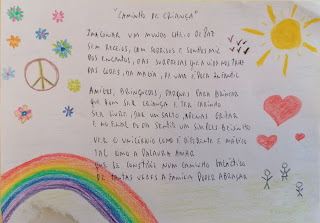 "CAMINHO DE CRIANÇA"
IMAGINAR UM MUNDO CHEIO DE PAZ
SEM RECEIOS, COM SORRISOS E SONHOS MIL
DOS ENCANTOS, DAS SURPRESAS QUE A VIDA NOS TRAZ
DAS CORES, DA MAGIA, DE UMA E DOCE INFANTIL
AMIGOS, BRINQUEDOS, PARQUES PARA BRINCAR
QUE BOM SER CRIANÇA E TER CARINHO
SER LIVRE, DAR UM SALTO, APENAS GRITAR
E NO FINAL DO DIA SENTIR UM SIMPLES BEIJINHO
VER O UNIVERSO COMO É DIFERENTE E MÁGICO
TAL COMO A PALAVRA AMAR
QUE SE CONSTRÓI NUM CAMINHO
DE TANTAS VEZES A FAMÍLIA PODER ABRAÇAR